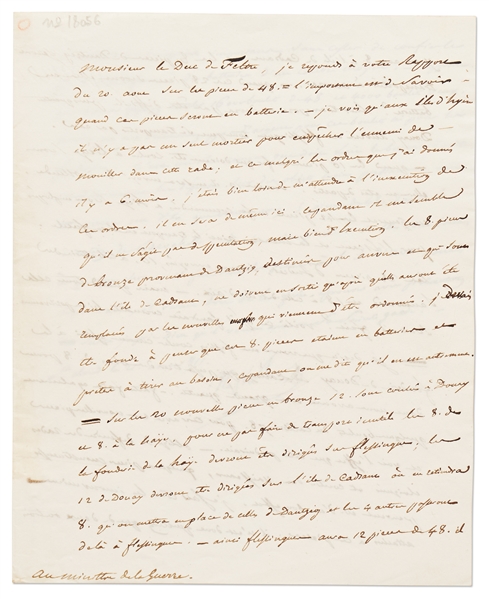 Monsieur le Duc de Feltre, je reponds à votre Rapport
du 20 aout sur les pieces de 48. = l'important est de Savoir
quand ces pieces seront en batterie. — je vois qu'aux iles d'hyères
il n'y a pas un seul mortier pour empêcher l'ennemi de
mouiller dans cette rade, et ce malgré les ordres que j'ai donnés
il y a 6 mois, j'étais bien loin de m'attendre à l'inexecution de
ces ordres. il en sera de même ici. cependant il me semble
qu'il ne s'agit pas de mais bien d'execution. les 8 pieces
de bronze provenant de Dantzig, destinées pour anvers et qui sont
dans l'ile de Cadzand, ne doivent en sortir qu'après qu'elles auront été
remplacées par les nouvelles qui viennent d'être ordonnées. je
être fondé à penser que ces 8. pieces etaient en batteries et
prêtes à tirer au besoin, cependant on me dit qu'il en est autrement.
= Sur les 20 nouvelles pieces en bronze 12. sont coulées à Douay
et 8. à la haye. pour ne pas faire de transport inutile les 8. de
la fonderie de la haye devront être dirigées sur flessingue, les
12 de Douay devront être dirigées sur l'ile de Cadzand où on retiendra
8. qu'on mettra en place de celles de Dantzig et les 4 autres passeront
de là à flessingue. — ainsi flessingue aura 12 pieces de 48. il
au ministre de la Guerre.